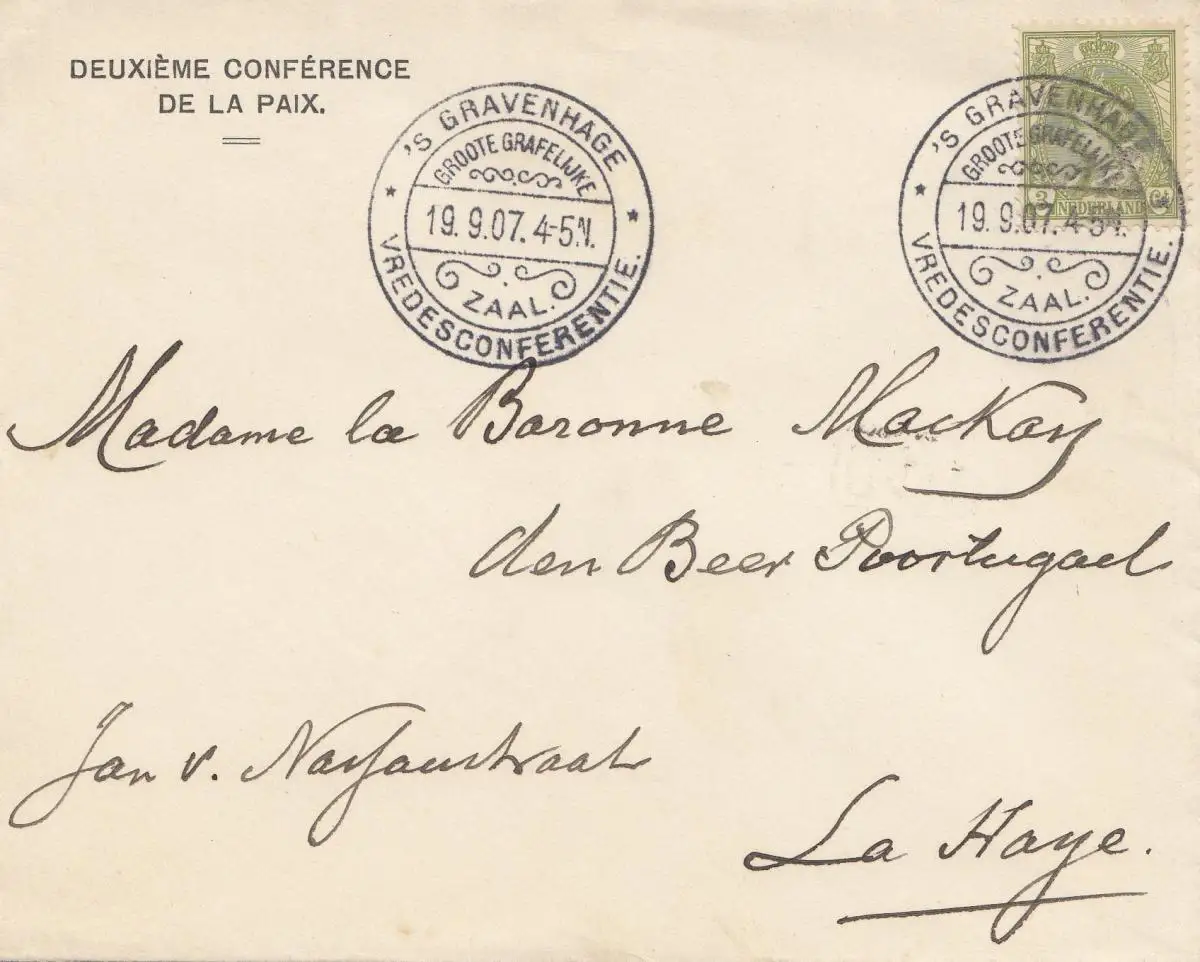 DEUXIÈME CONFÉRENCE
DE LA PAIX.
'S GRAVENHAGE
GROOTE GRAFELIJKE
19.9.07.4-5N.
ZAAL.
VREDESCONFERENTIE.
'S GRAVENHAGE
GROOTE GRAFELIJKE
19.9.07.4-5N.
ZAAL.
VREDESCONFERENTIE.
3 NEDERLAND Ct
Madame la Baronne Mackay
den Beer Poortugael
Jan v. Nassaustraat
La Haye.